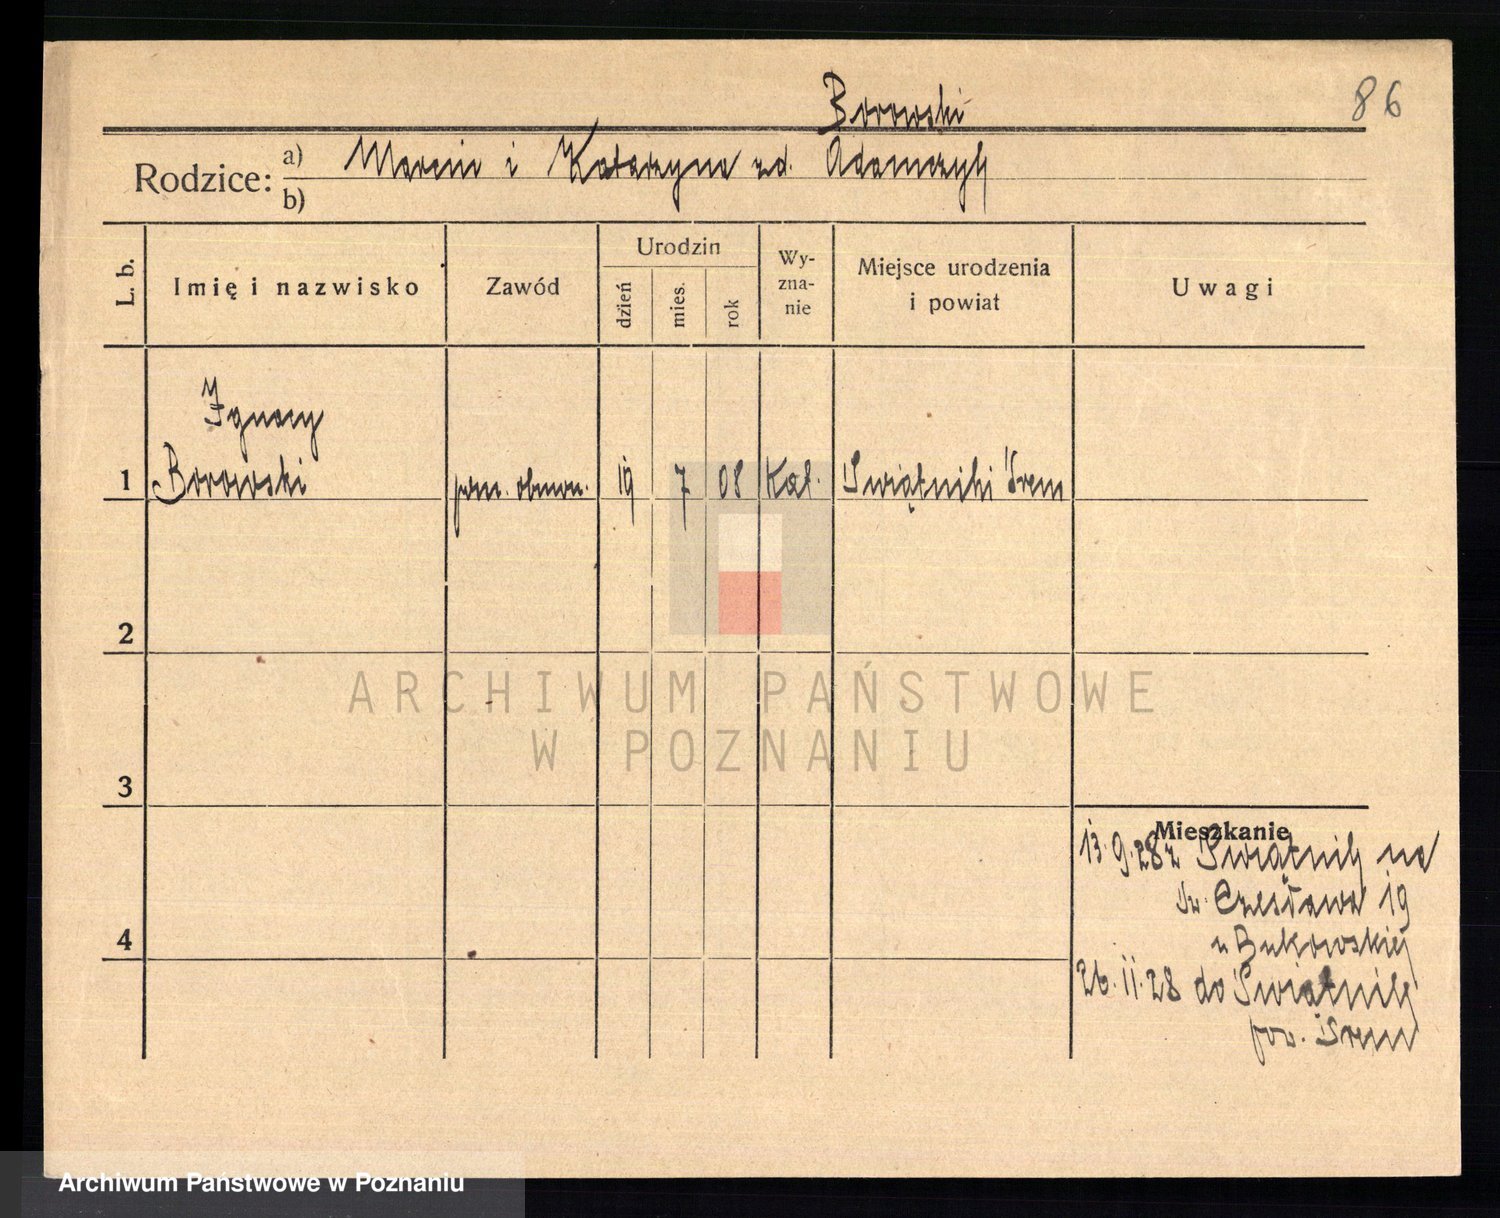 Borowski
86
Rodzice: a) Marcin i Katarzyna zd. Adamczyk
b)
L. b.
Imię i nazwisko
Zawód
Urodzin
dzień
mies.
rok
Wy-
zna-
nie
Miejsce urodzenia
i powiat
Uwagi
Ignacy
1 Borowski pom. 19 7 08 Kat. Świątniki Śrem
2
ARCHIWUM PAŃSTWOWE
W POZNANIU
3
Mieszkanie
13.9.28 z Świątnik na
Św. Czesława 19
u Bukowskiej
4
26.11.28 do Świątnik
pow. Śrem
Archiwum Państwowe w Poznaniu